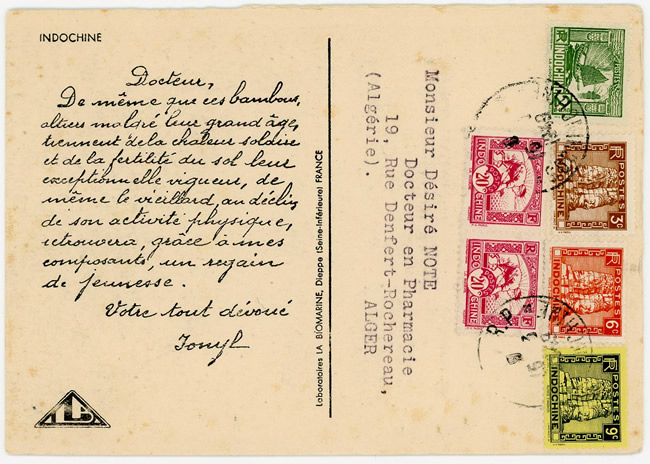 INDOCHINE
Docteur,
De même que ces bambous,
altiers malgré leur grand âge,
tiennent de la chaleur solaire
et de la fertilité du sol leur
exceptionnelle vigueur, de
même le vieillard, au déclin
de son activité physique,
retrouvera, grâce à mes
composants, un regain
de jeunesse.
Votre tout dévoué
Ionyl
Laboratoires LA BIOMARINE, Dieppe (Seine-Inférieure) FRANCE
Monsieur Désiré NOTE
Docteur en Pharmacie
19, Rue Denfert-Rochereau,
ALGER
(Algérie).
RF
POSTES
INDOCHINE
RF
POSTES
3c
INDOCHINE
RF
POSTES
6c
INDOCHINE
RF
POSTES
9c
INDOCHINE
INDOCHINE
20c
RF
INDOCHINE
20c
RF